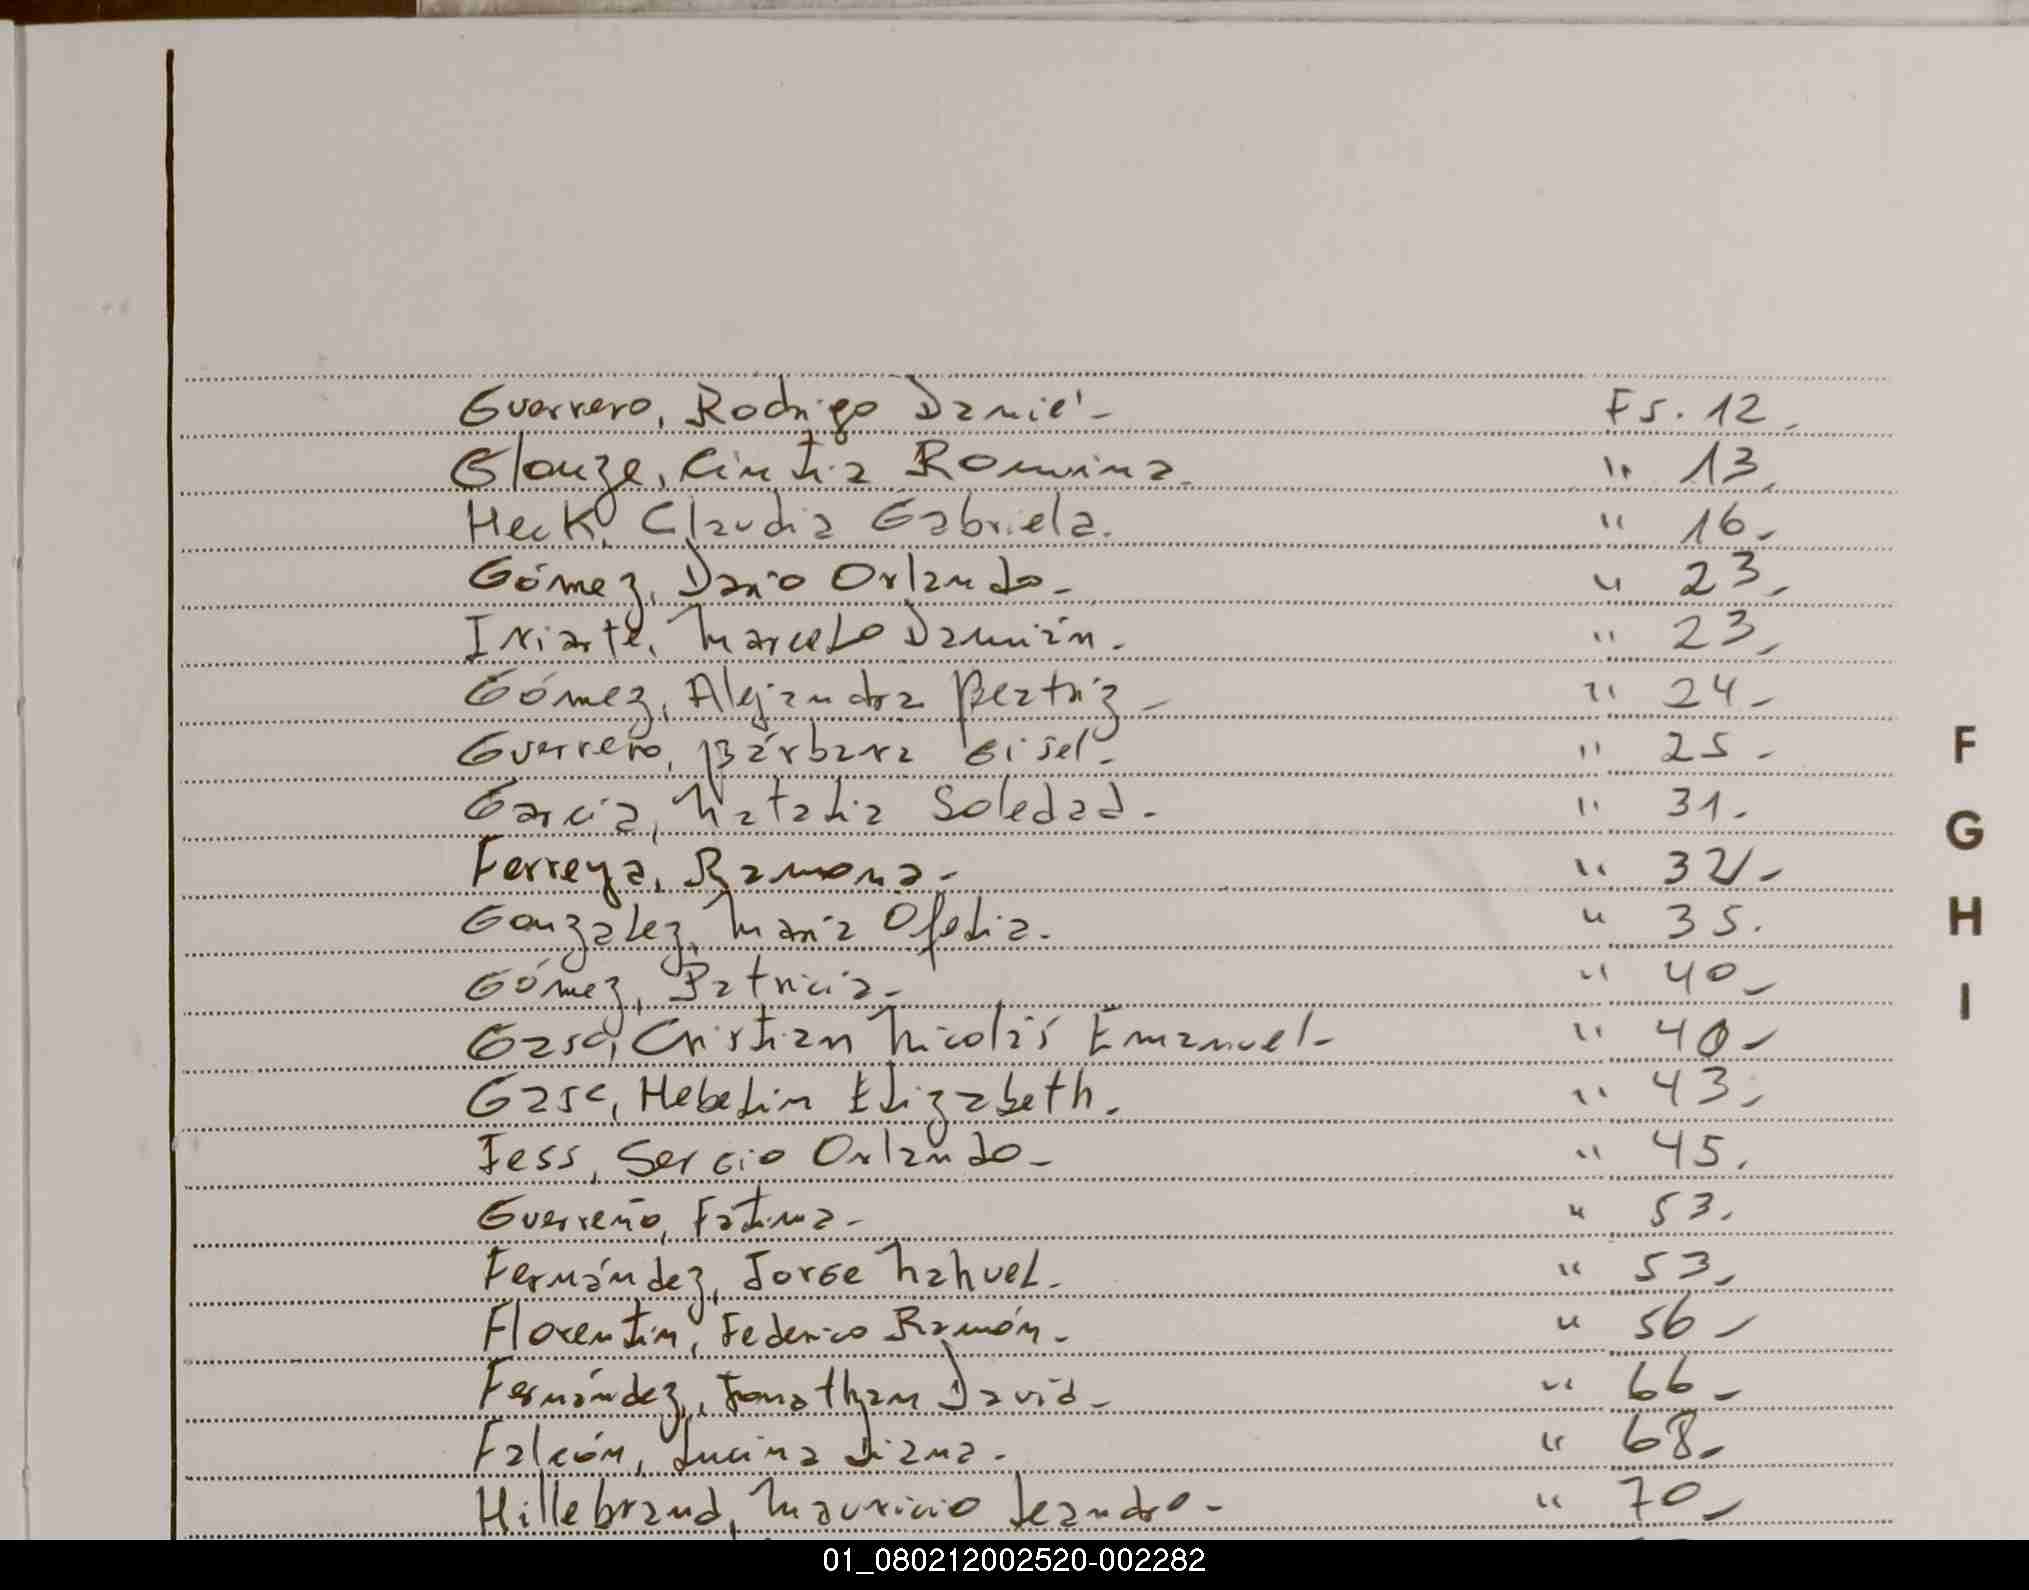 Guerrero, Rodrigo Daniel - Fs. 12 -
Glouze, Cintia Romina - " 13 -
Heck, Claudia Gabriela. " 16 -
Gómez, Darío Orlando - " 23 -
Iriarte, Marcelo Damián - " 23 -
Gómez, Alejandra Beatriz - " 24 -
Guerrero, Bárbara Gisel - " 25 -
García, Natalia Soledad - " 31 -
Ferreyra, Ramona - " 32 -
González, María Ofelia. " 35.
Gómez, Patricia - " 40 -
Gasc, Cristian Nicolás Emanuel - " 40 -
Gasc, Hebelin Elizabeth. " 43 -
Fess, Sergio Orlando - " 45.
Guerreño, Fátima - " 53.
Fernández, Jorge Nahuel - " 53 -
Florentin, Federico Ramón - " 56 -
Fernández, Jonathan David - " 66 -
Falcón, Lucina Liana - " 68 -
Hillebrand, Mauricio Leandro - " 70 -
F
G
H
I
01_080212002520-002282